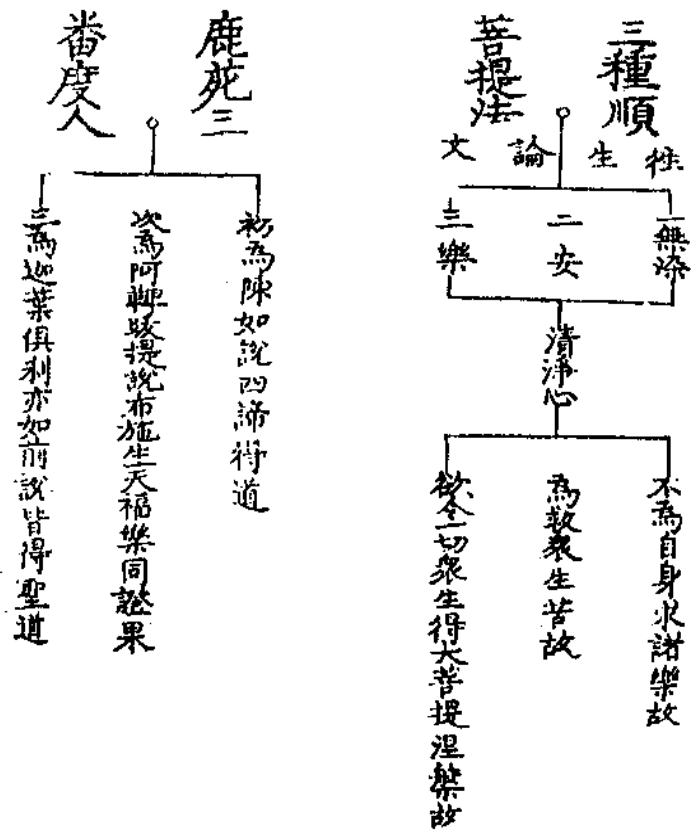 三種順
菩提法
往生論文
一無染
二安
三樂
清淨心
不為自身求諸樂故
為救衆生苦故
欲令一切衆生得大菩提涅槃故
鹿苑三
番度人
初為陳如說四諦得道
次為阿鞞跋提說布施生天福樂同證果
三為迦葉俱利亦如前說皆得聖道